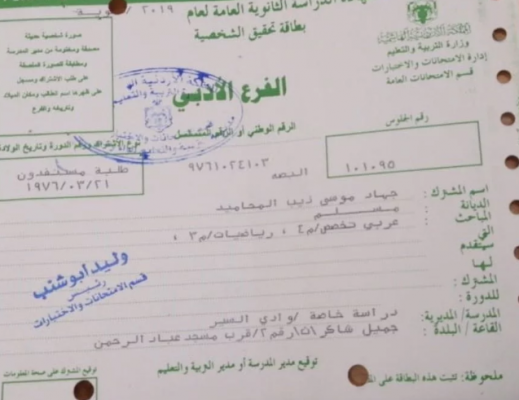 الدراسة الثانوية العامة لعام ٢٠١٩
بطاقة تحقيق الشخصية
وزارة التربية والتعليم
إدارة الامتحانات والاختبارات
قسم الامتحانات العامة
صورة شخصية حديثة
مصدقة ومختومة من مدير المدرسة
ومطابقة للصورة الملصقة
على طلب الاشتراك ومسجل
على ظهرها اسم الطالب ومكان الميلاد
وتاريخه والفرع
الفرع الأدبي
رقم الجلوس
١٠١٠٩٥
الرقم الوطني أو الرقم المتسلسل
٩٧٦١٠٢٤١٠٣
نوع الاشتراك ورقم الدورة وتاريخ الولادة
طلبة مستنفدون
١٩٧٦/٠٣/٢١
اسم المشترك : جهاد موسى ذيب المحاميد
الديانة : مسلم
المباحث : عربي تخصص/م٤ ، رياضيات/م٣ ،
التي
سيتقدم
لها
المشترك :
للدورة :
المدرسة/ المديرية : دراسة خاصة /وادي السير
القاعة / البلدة : جميل شاكر/ن/رقم٢/قرب مسجد عباد الرحمن
وليد أبو شنب
رئيس
قسم الامتحانات والاختبارات
توقيع مدير المدرسة أو مدير التربية والتعليم
توقيع المشترك على صحة المعلومات
ملحوظة: تثبت هذه البطاقة على